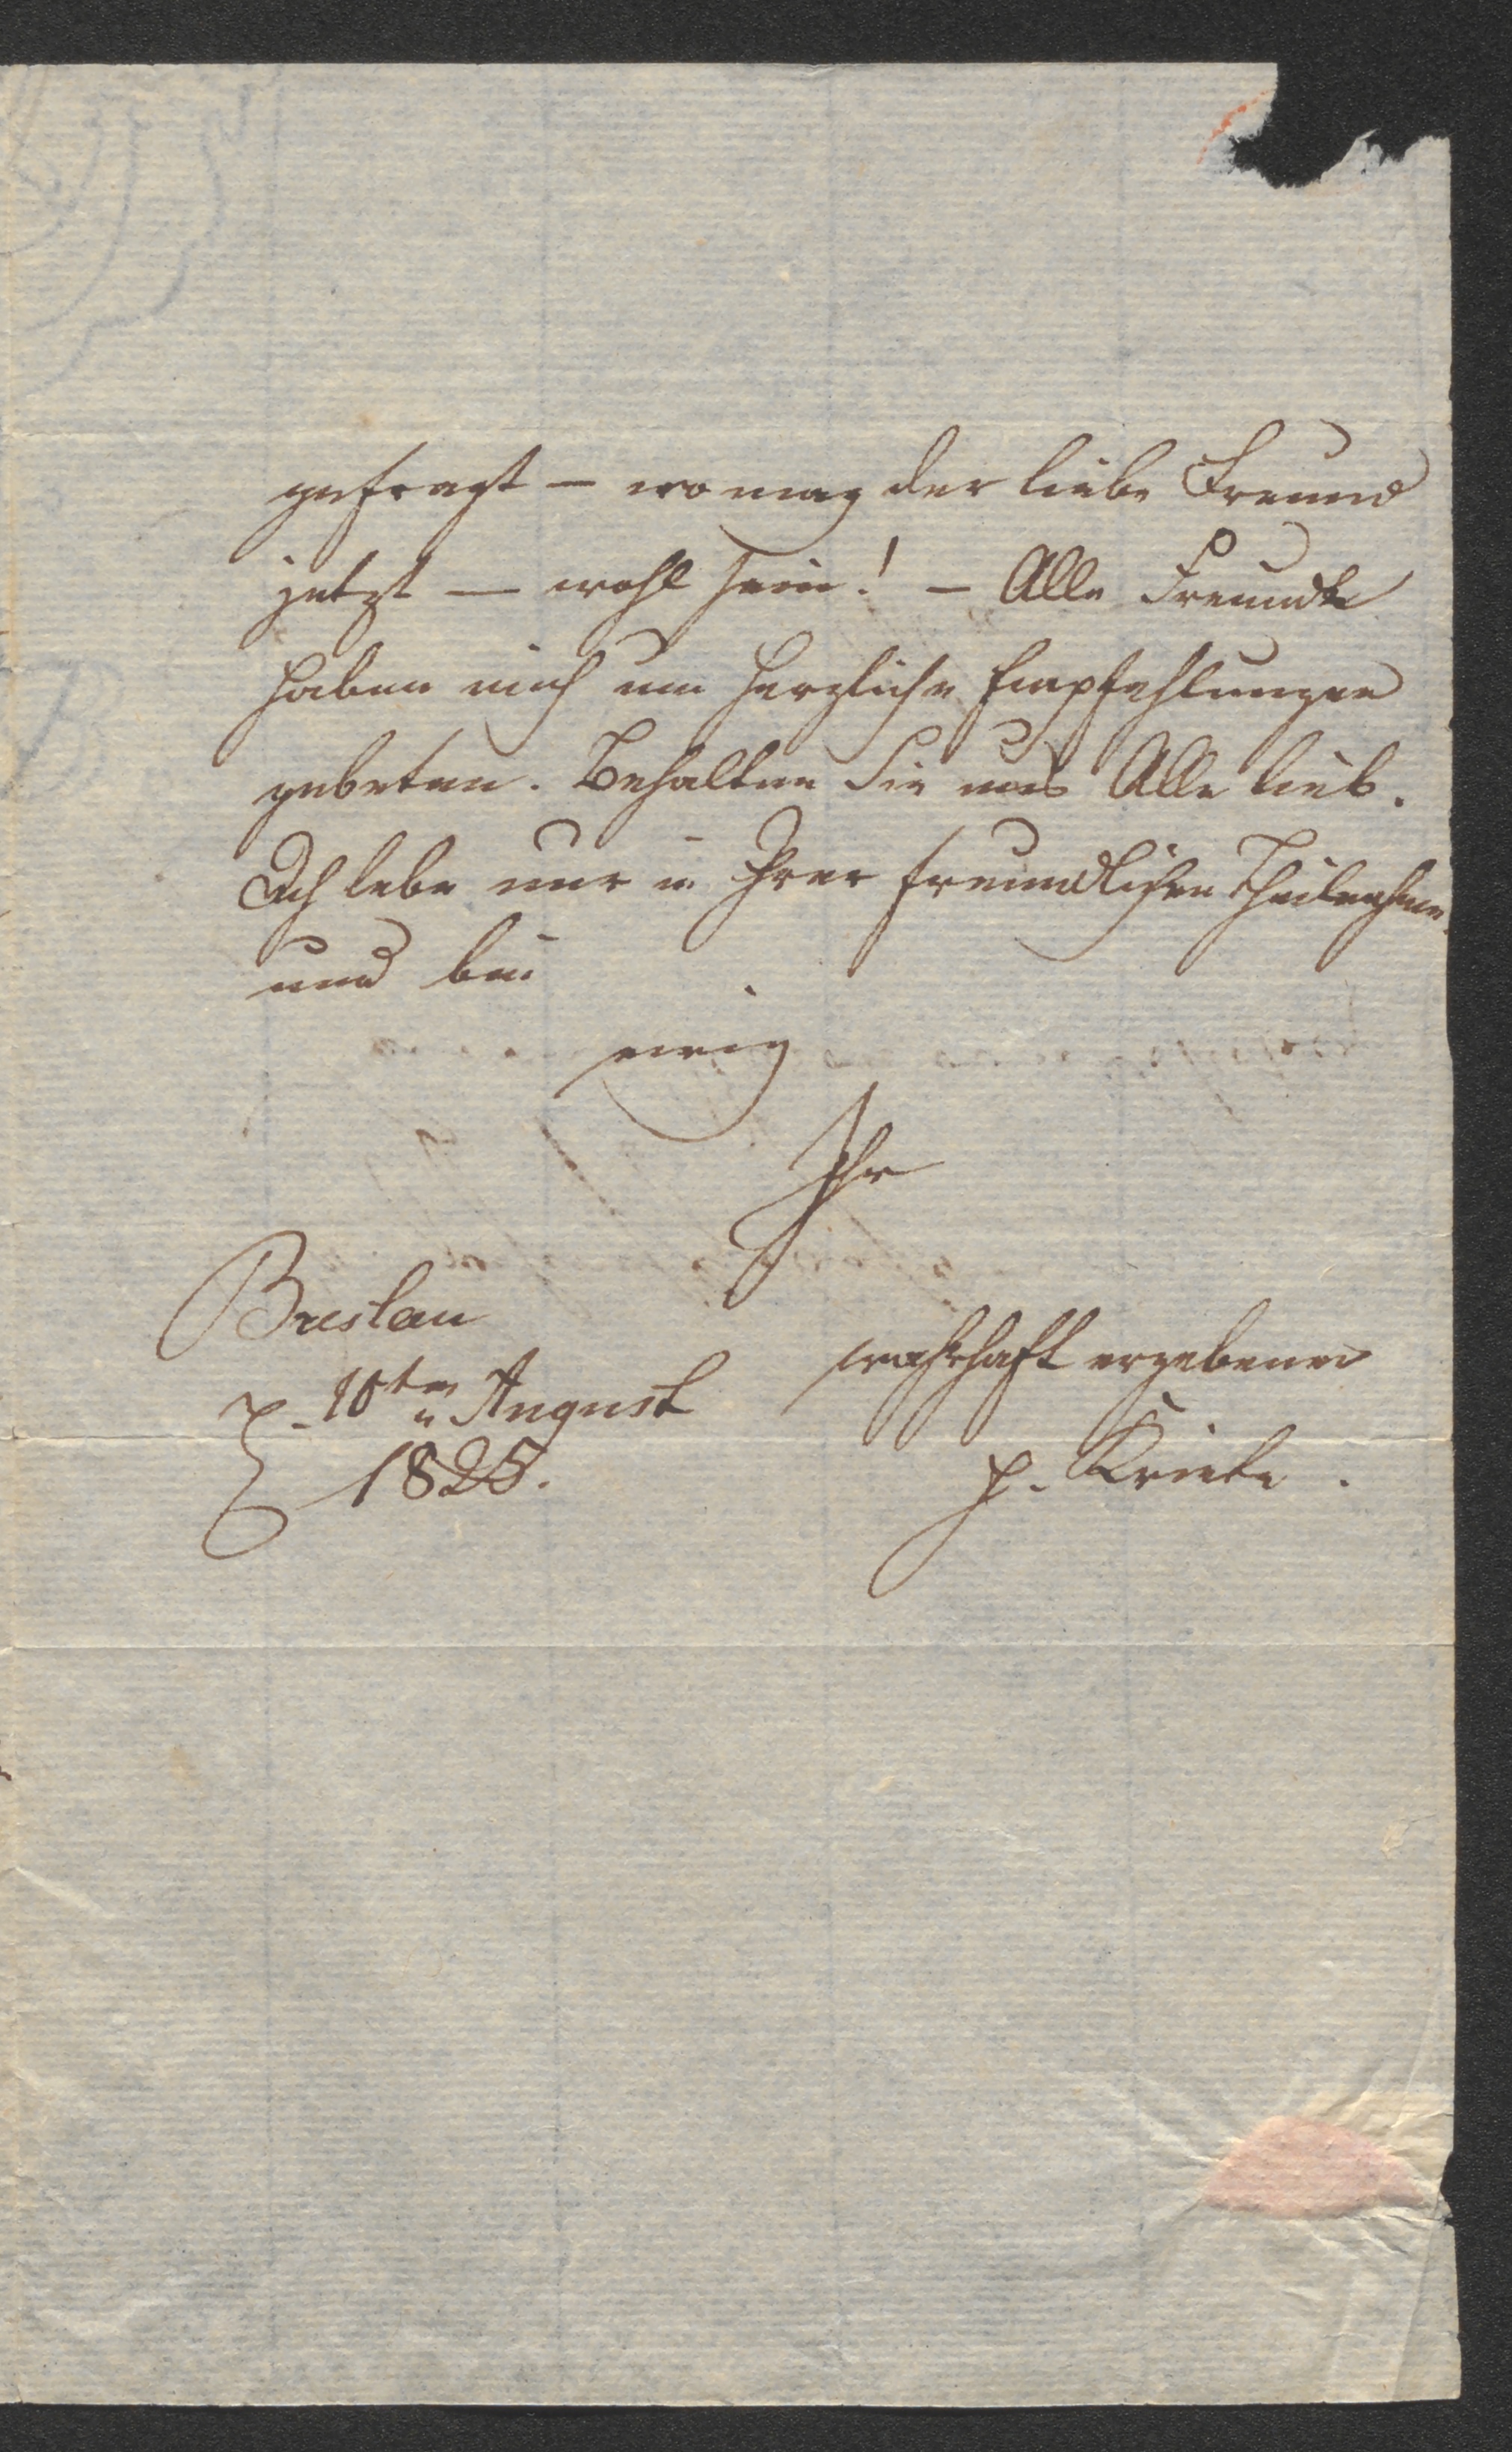 gefragt – wo mag der liebe Freund
jetzt – wohl sein! – Alle Freunde
haben mich um herzliche Empfehlungen
gebeten. Behalten Sie uns Alle lieb.
Ich lebe nur in Ihrer freundlichen Theilnahme
und bin
ewig
Ihr
Breslau
wahrhaft ergebener
d. 10ten August
1825.
H. Kriete.